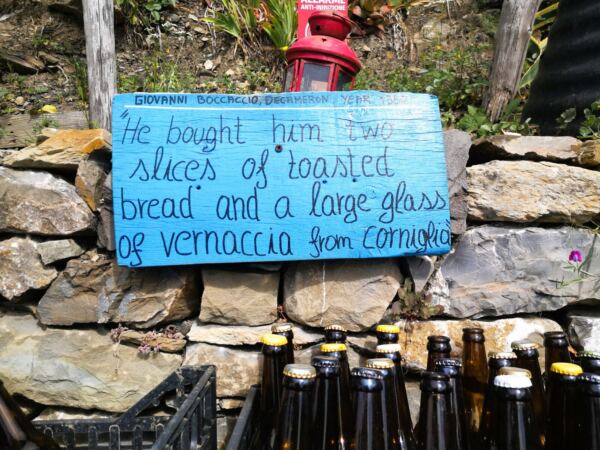 ALLARME
ANTI-INTRUSIONE
GIOVANNI BOCCACCIO, DECAMERON, YEAR
"He bought him two
slices of toasted
bread and a large glass
of vernaccia from corniglia